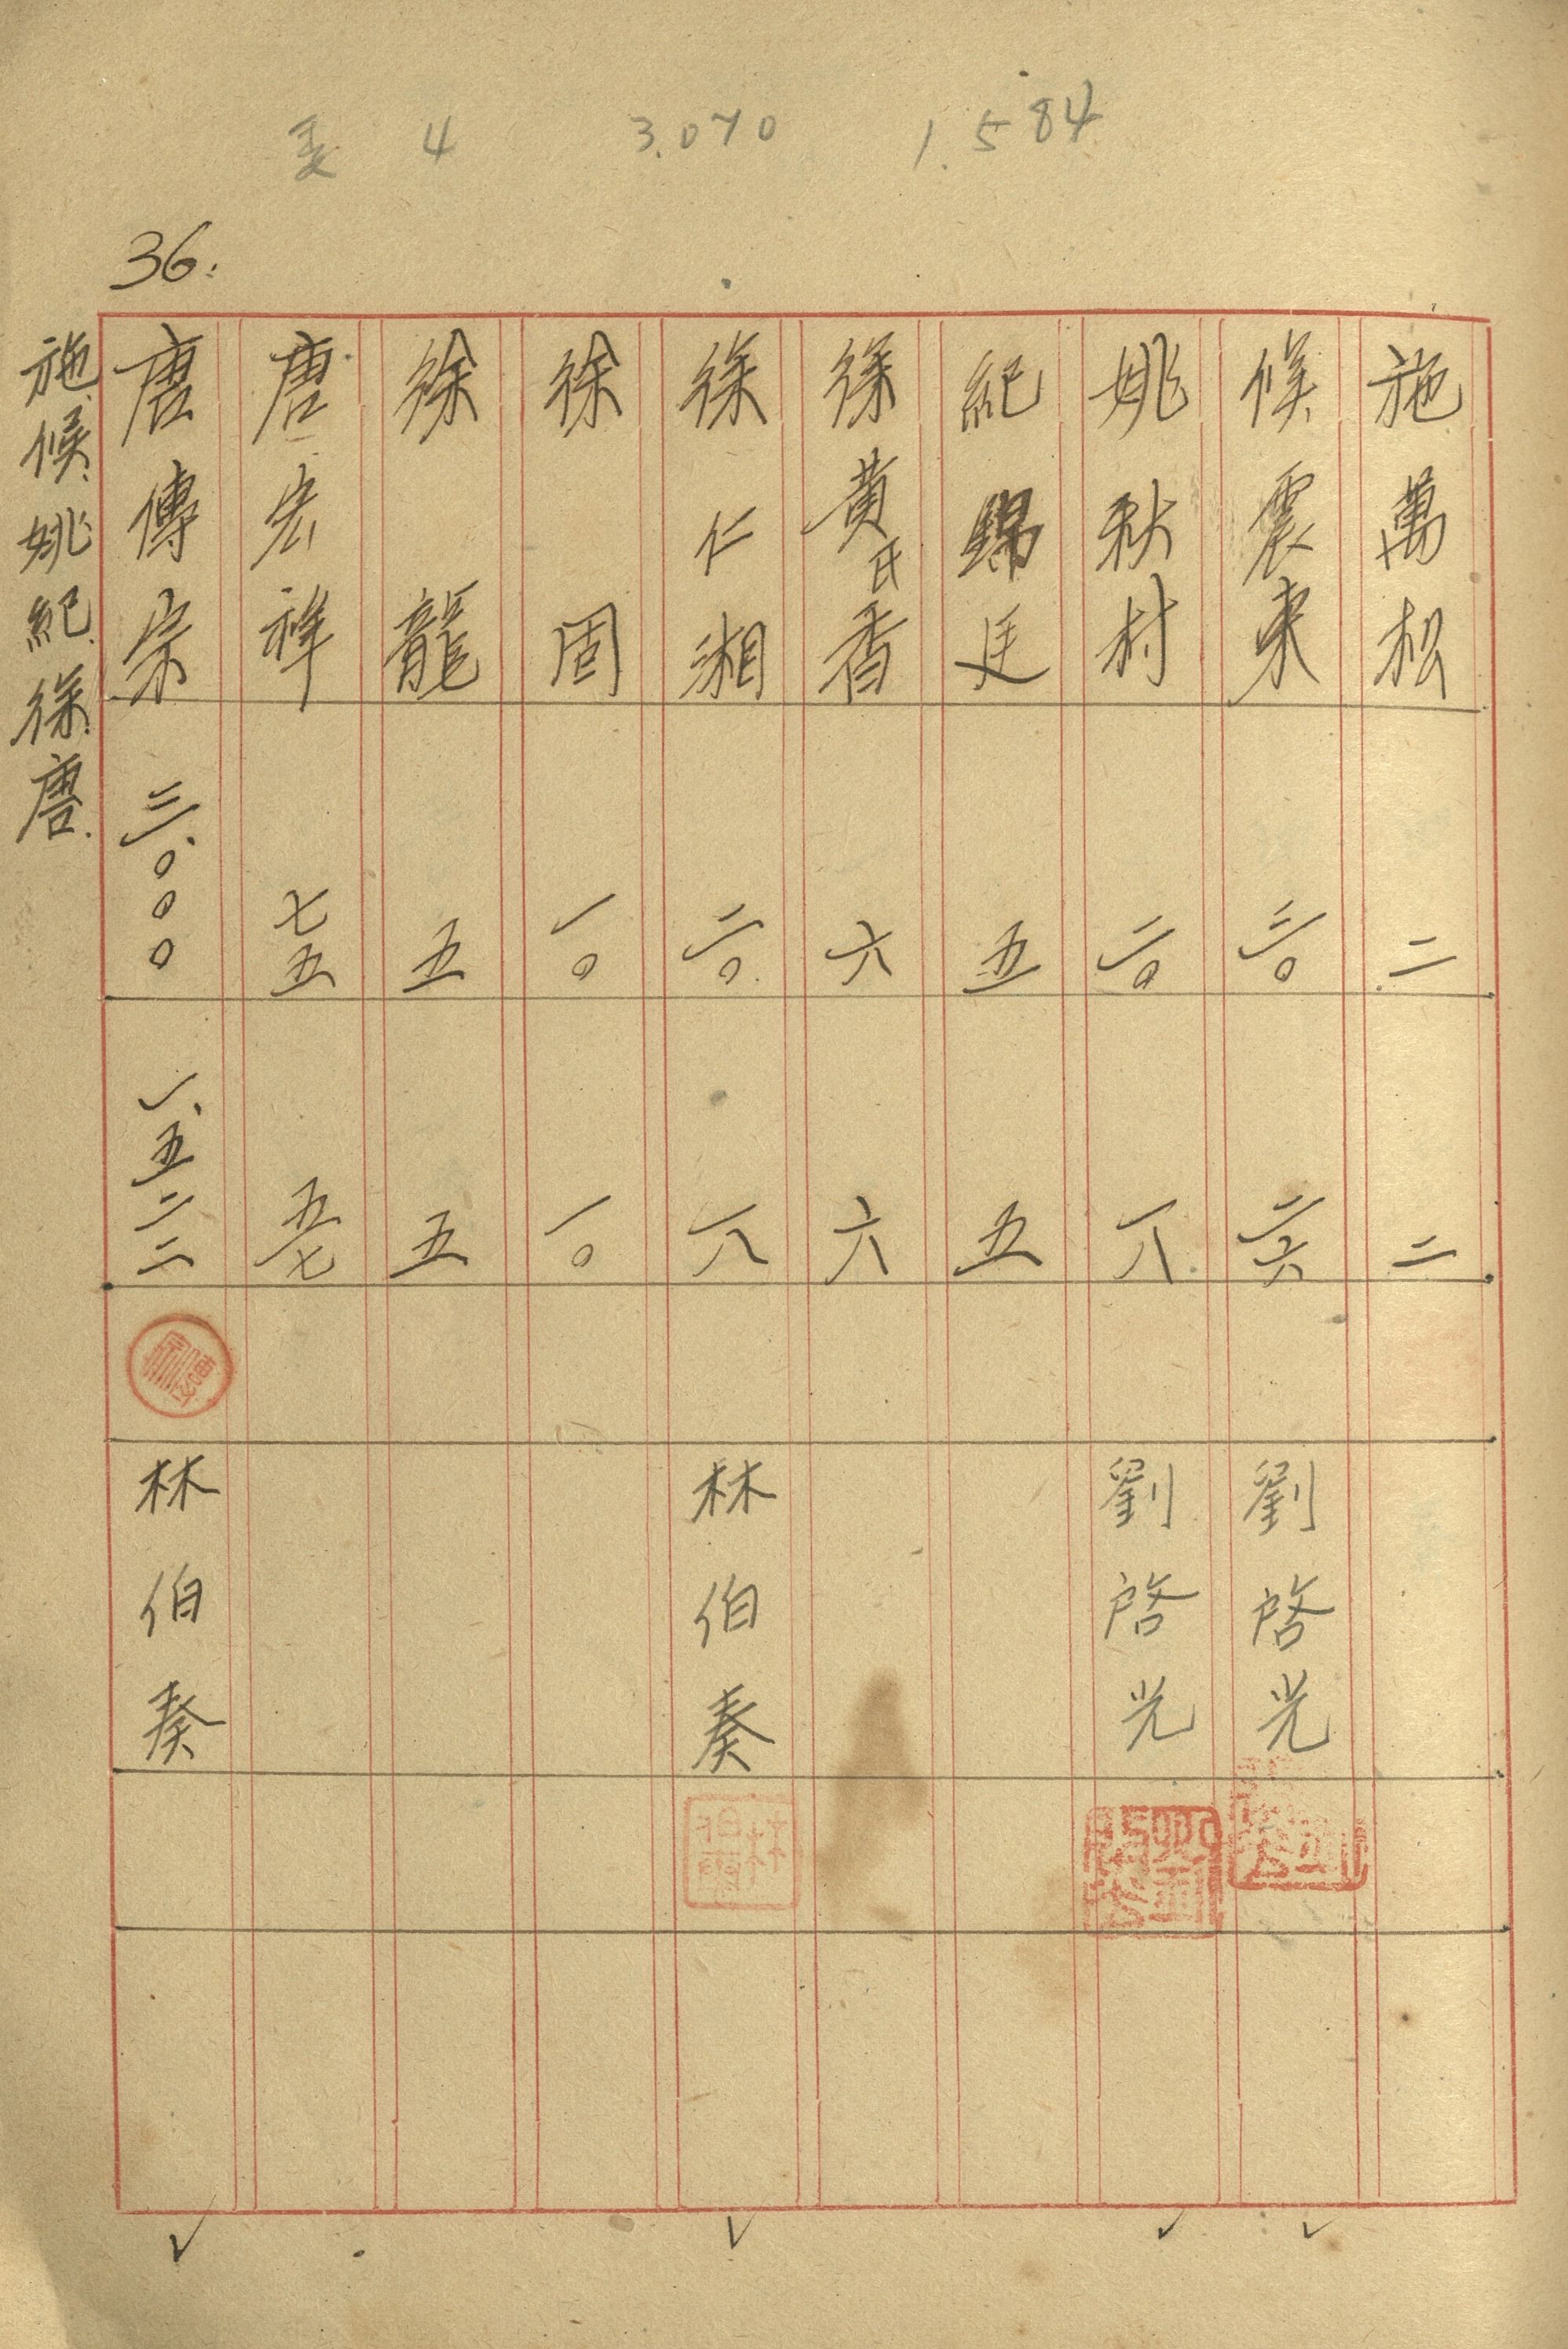 委 4 3.070 1.584
36.
施萬松 二 二
候震東 三〇 二六 劉啓光
姚秋村 二〇 一八 劉啓光
紀錦廷 五 五
徐黃氏香 六 六
徐仁湘 二〇 一八 林伯奏
徐固 一〇 一〇
徐龍 五 五
唐宏祥 七五 五七
唐傳宗 三.〇〇〇 一.五二二 林伯奏
施.候.姚.紀.徐.唐.